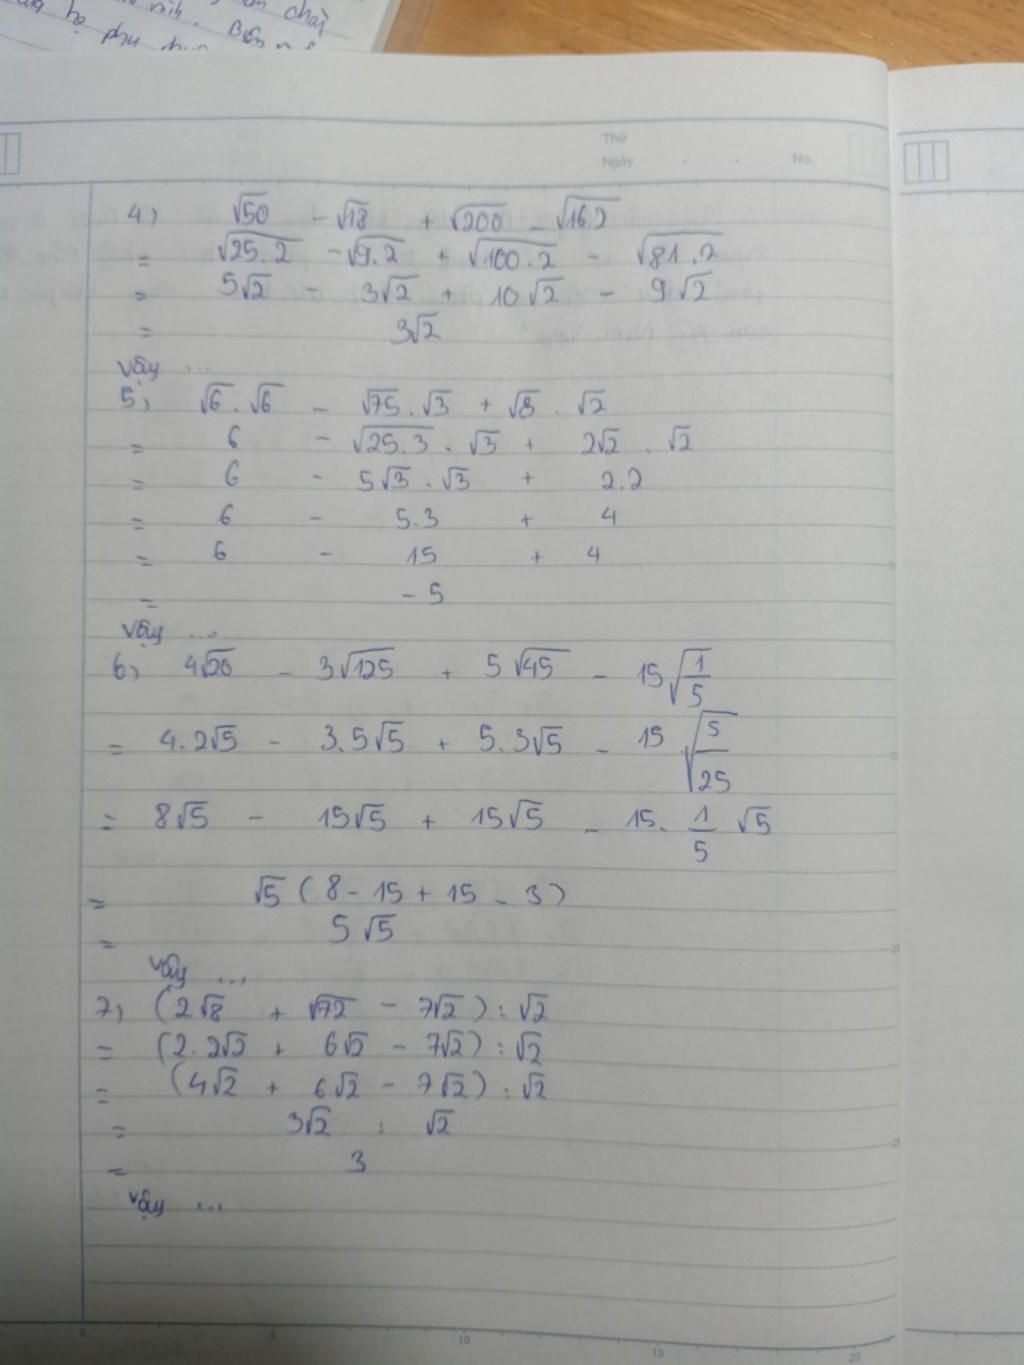 chất
phụ
Thứ
Ngày . . No.
4) √50 - √18 + √200 - √162
= √25.2 - √9.2 + √100.2 - √81.2
= 5√2 - 3√2 + 10√2 - 9√2
= 3√2
Vậy ...
5) √6 . √6 - √75 . √3 + √8 . √2
= 6 - √25.3 . √3 + 2√2 . √2
= 6 - 5√3 . √3 + 2.2
= 6 - 5.3 + 4
= 6 - 15 + 4
= -5
Vậy ...
6) 4√20 - 3√125 + 5√45 - 15√(1/5)
= 4.2√5 - 3.5√5 + 5.3√5 - 15√(5/25)
= 8√5 - 15√5 + 15√5 - 15. 1/5 √5
= √5 (8 - 15 + 15 - 3)
= 5√5
Vậy ...
7) (2√8 + √72 - 7√2) : √2
= (2.2√2 + 6√2 - 7√2) : √2
= (4√2 + 6√2 - 7√2) : √2
= 3√2 : √2
= 3
Vậy ...
0 5 10 15 20